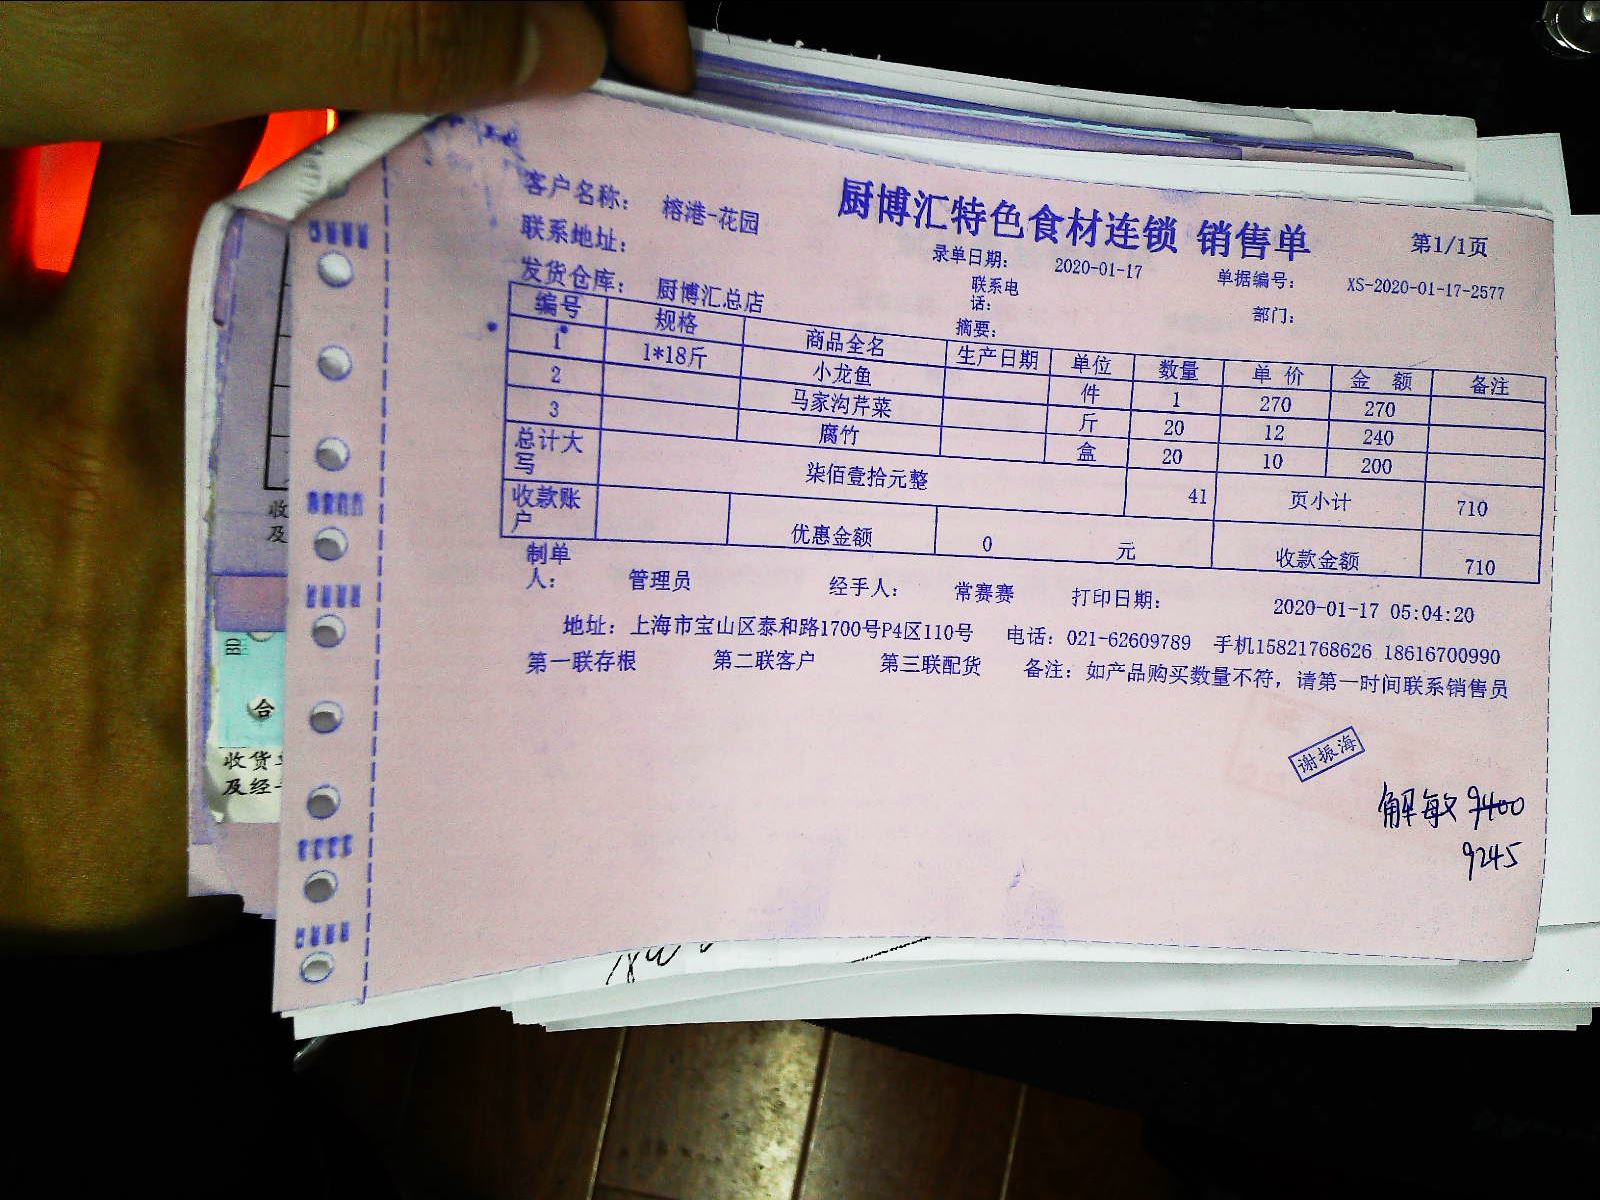 厨博汇特色食材连锁 销售单 第1/1页
客户名称： 榕港-花园 录单日期： 2020-01-17 单据编号： XS-2020-01-17-2577
联系地址： 联系电话： 部门：
发货仓库： 厨博汇总店 摘要：
编号 规格 商品全名 生产日期 单位 数量 单价 金额 备注
1 1*18斤 小龙鱼 件 1 270 270
2 马家沟芹菜 斤 20 12 240
3 腐竹 盒 20 10 200
总计大写 柒佰壹拾元整 41 页小计 710
收款账户 优惠金额 0 元 收款金额 710
制单人： 管理员 经手人： 常赛赛 打印日期： 2020-01-17 05:04:20
地址：上海市宝山区泰和路1700号P4区110号 电话：021-62609789 手机15821768626 18616700990
第一联存根 第二联客户 第三联配货 备注：如产品购买数量不符，请第一时间联系销售员
谢振海
解敏 9400
9245
收
及
BD
合
收货
及经